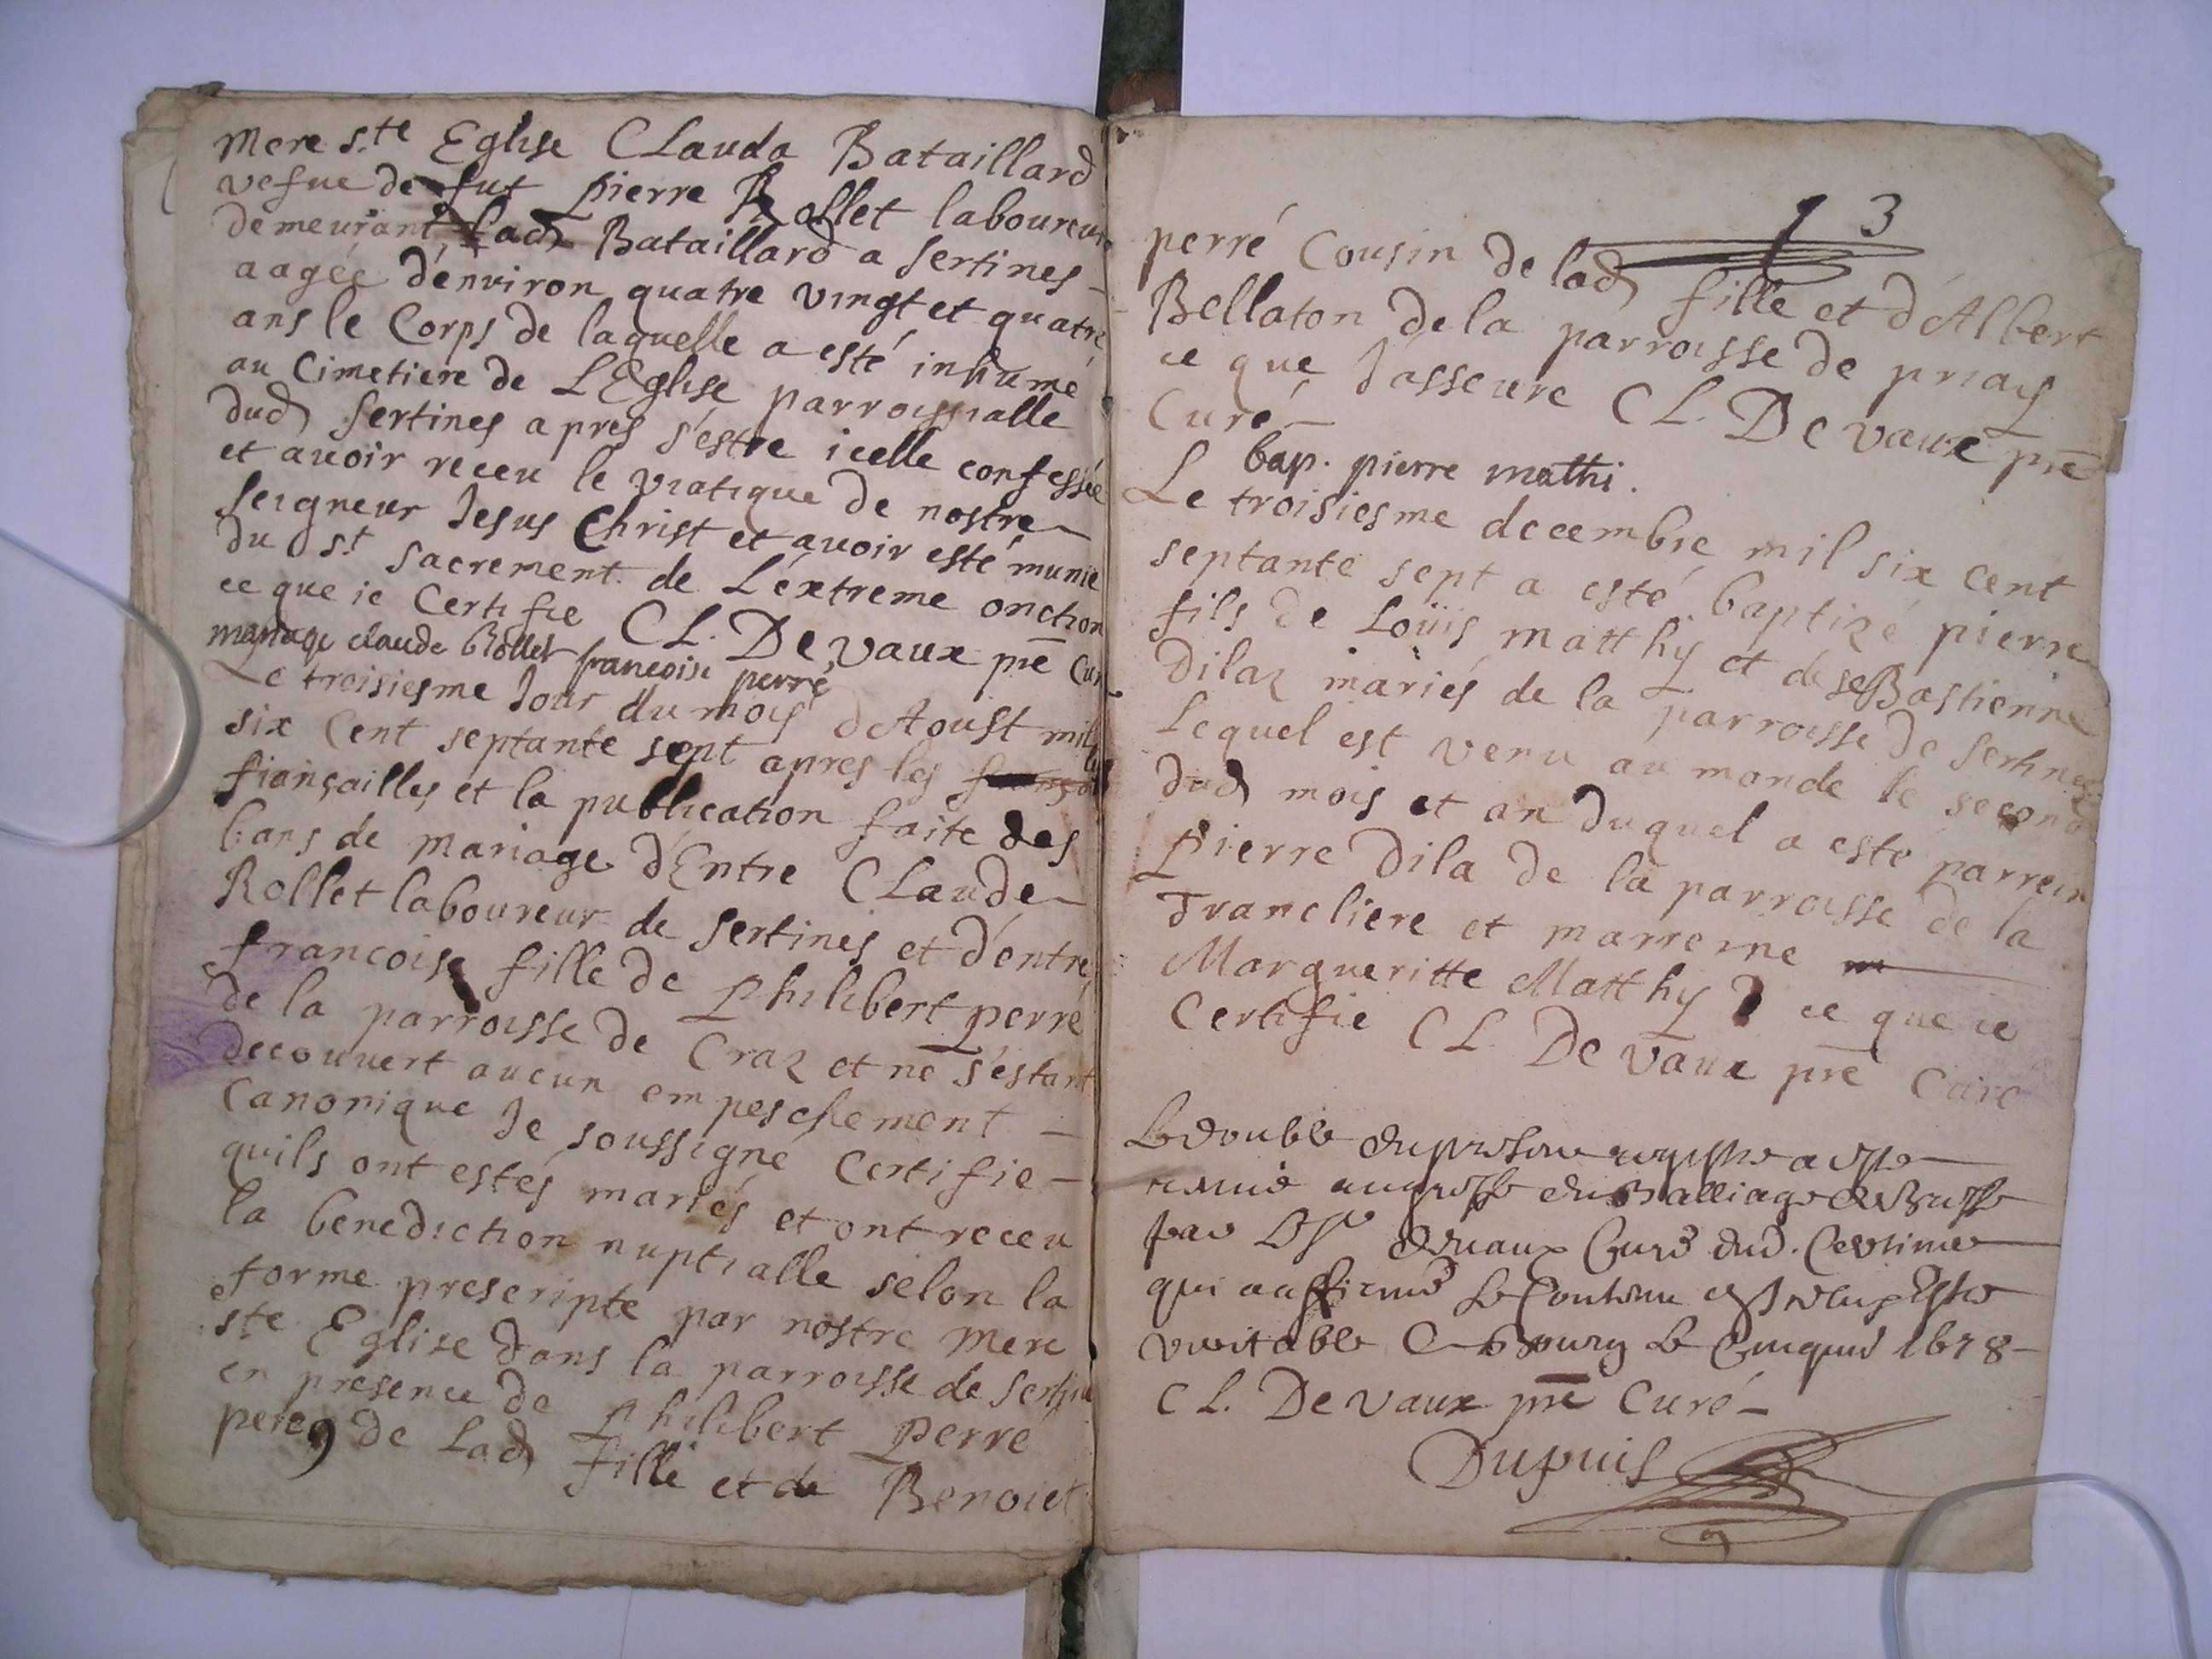 Mere s.te Eglise CLauda Bataillard
vefue de fut pierre Rollet laboureur
demeurant lad Bataillard a Sertines –
aagée d'environ quatre vingt et quatre
ans le Corps de laquelle a esté inhumé
au Cimetiere de LEglise parroissialle
dud Sertines apres s'estre icelle confessée
et auoir receu le viatique de nostre
seigneur Jesus Christ et auoir esté munie
du s.t sacrement de L'extreme onction
ce que ie Certifie CL. De vaux pre Cur
mariage claude Rollet francoise perré
Le troisiesme Jour du mois d'Aoust mil
six Cent septante sept apres les
fiançailles et la publication faite des
bans de mariage d'Entre CLaude
Rollet laboureur de Sertines et d'entre
francoise fille de Philibert perré
de la parroisse de Craz et ne s'estant
decouvert aucun empeschement –
Canonique Je soussigné Certifie –
quils ont estés mariés et ont receu
la benediction nuptialle selon la
forme prescripte par nostre Mere
ste Eglise dans la parroisse de Sertine
en presence de Philibert Perre
pere de Lad fille et de Benoiet
13
perré Cousin de lad fille et d'Albert
Bellaton de la parroisse de priay
ce que J'asseure CL. De vaux pre
Curé –
bap. pierre mathi.
Le troisiesme decembre mil six cent
septante sept a esté baptizé pierre
fils de Loüis matthy et de seBastienne
Dilaz mariés de la parroisse de Sertines
Lequel est venu au monde le second
dud mois et an duquel a esté parrein
Pierre Dila de la parroisse de la
Trancliere et marreine
Margueritte Matthy ce que ie
Certifie CL De vaux pre Curé
Le double du present registre a esté
remis au greffe du Balliage de Bresse
par Led Sr Devaux Curé dud. Certines
qui a affirmé Le Contenu estre
veritable A Bourg Le 1678 –
CL. De vaux pre Curé –
Dupuis